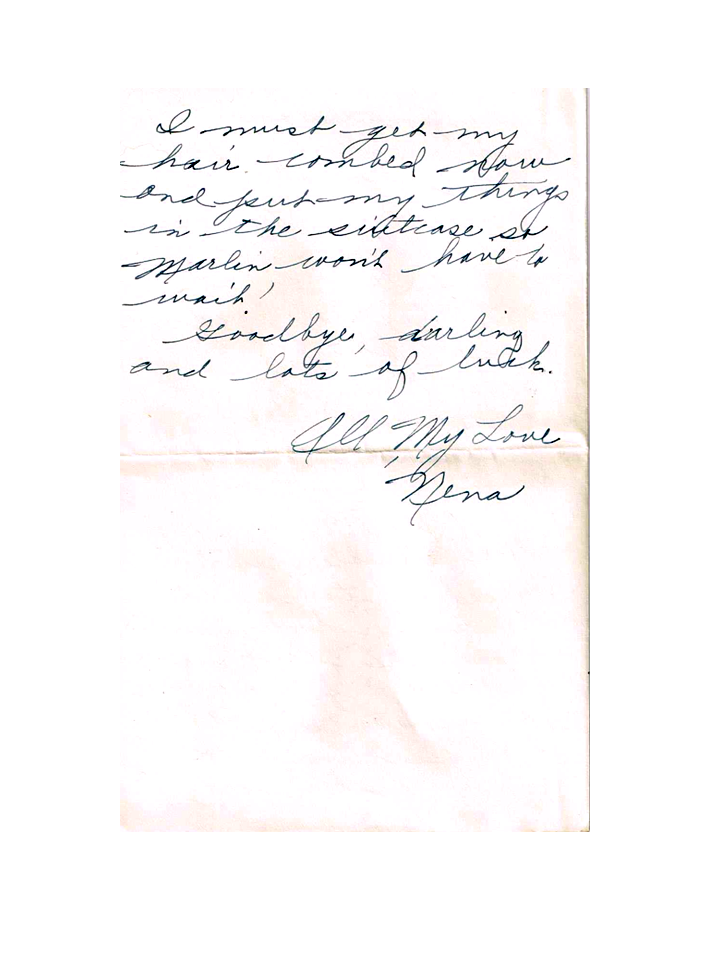 I must get my
hair combed now
and put my things
in the suitcase so
Marlin won't have to
wait!
Goodbye, darling
and lots of luck.
All My Love
Nena